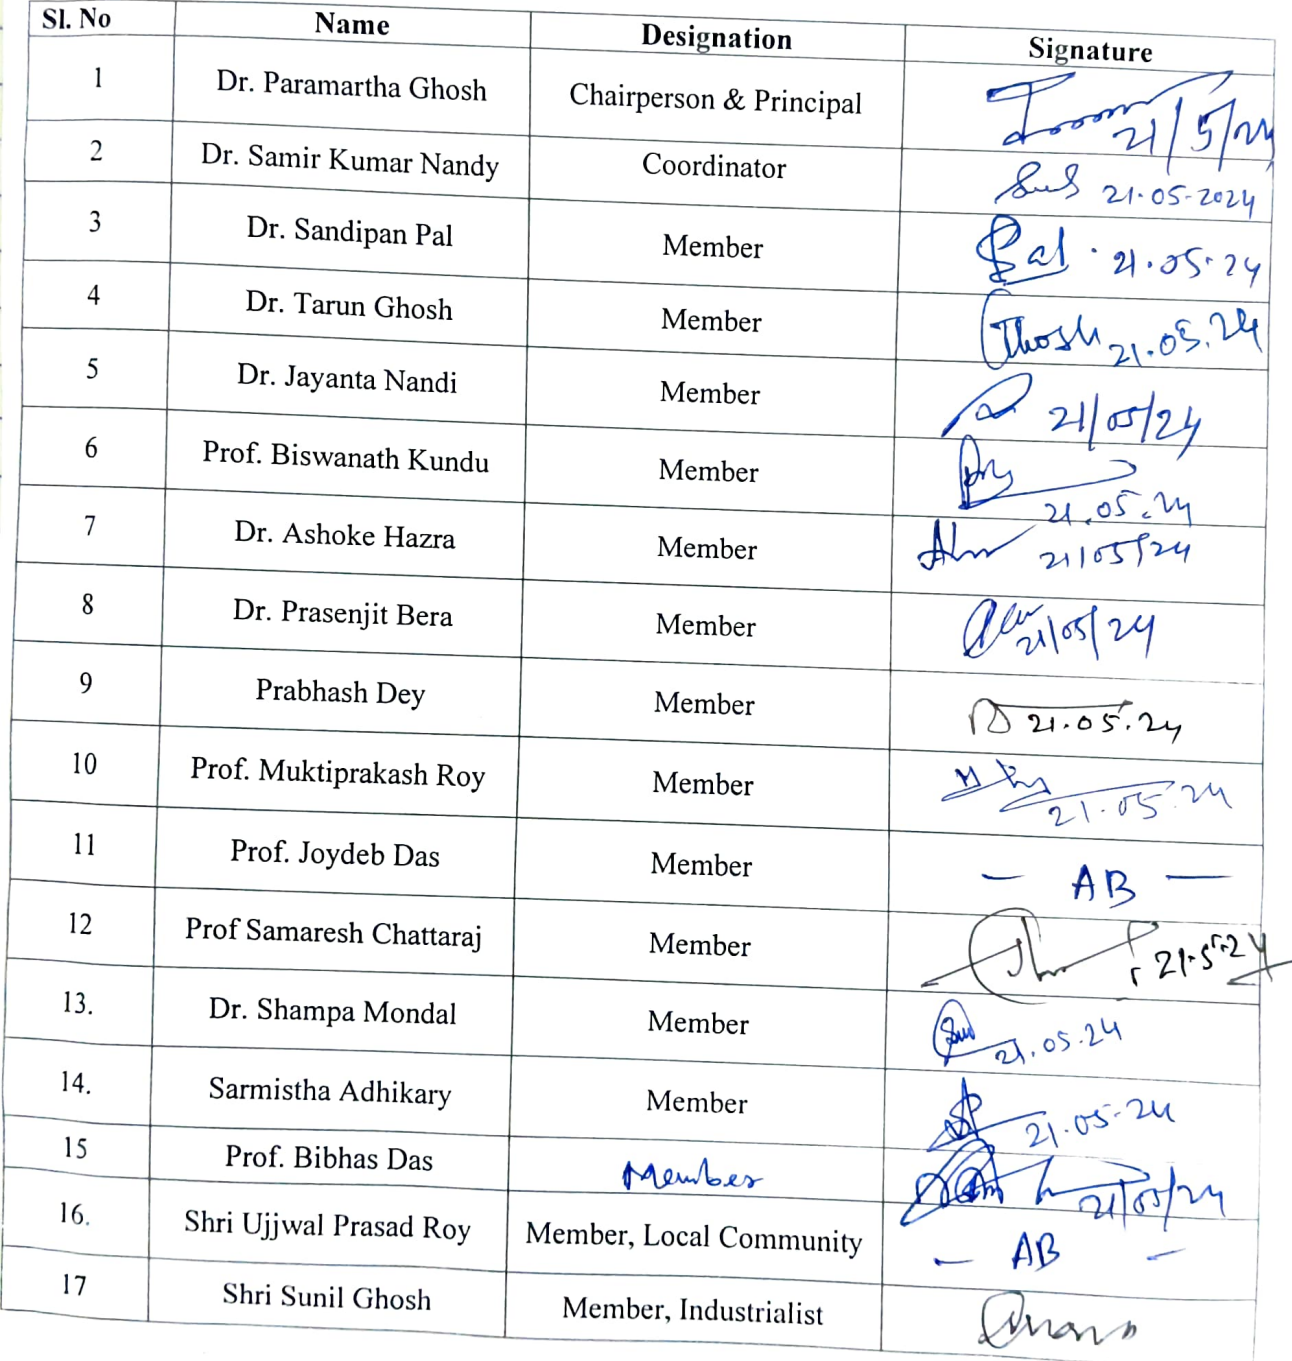 Sl. No Name Designation Signature
1 Dr. Paramartha Ghosh Chairperson & Principal 21/5/24
2 Dr. Samir Kumar Nandy Coordinator 21.05.2024
3 Dr. Sandipan Pal Member Pal 21.05.24
4 Dr. Tarun Ghosh Member Ghosh 21.05.24
5 Dr. Jayanta Nandi Member 21/05/24
6 Prof. Biswanath Kundu Member 21.05.24
7 Dr. Ashoke Hazra Member 21/05/24
8 Dr. Prasenjit Bera Member 21/05/24
9 Prabhash Dey Member 21.05.24
10 Prof. Muktiprakash Roy Member 21.05.24
11 Prof. Joydeb Das Member — AB —
12 Prof Samaresh Chattaraj Member 21.5.24
13. Dr. Shampa Mondal Member 21.05.24
14. Sarmistha Adhikary Member 21.05.24
15 Prof. Bibhas Das Member 21/05/24
16. Shri Ujjwal Prasad Roy Member, Local Community — AB —
17 Shri Sunil Ghosh Member, Industrialist